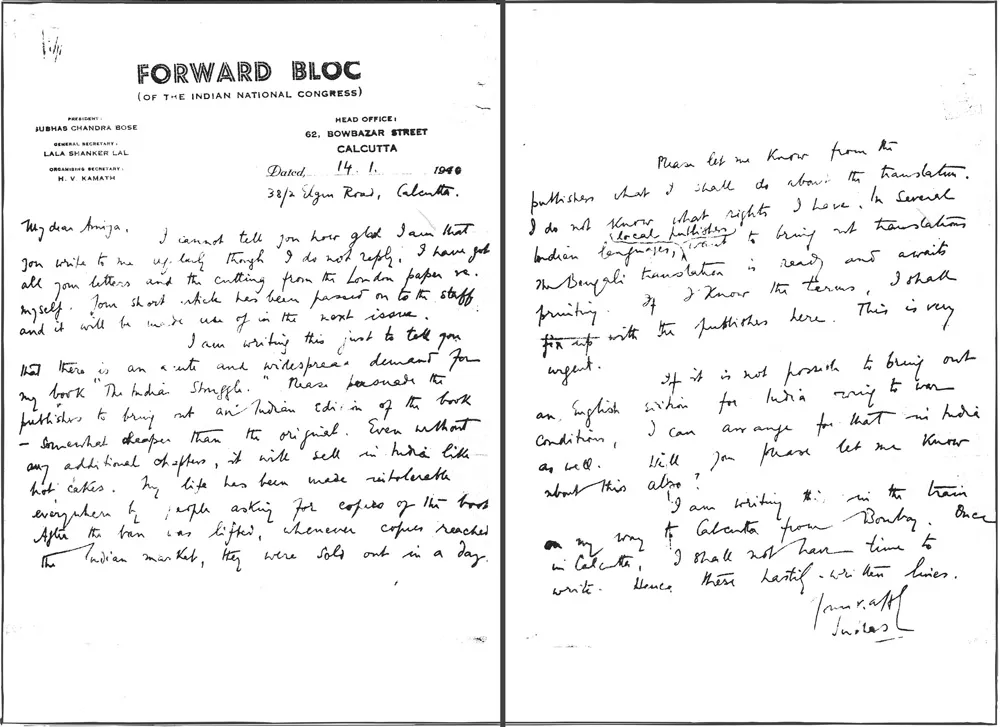 FORWARD BLOC
(OF THE INDIAN NATIONAL CONGRESS)
PRESIDENT:
SUBHAS CHANDRA BOSE
GENERAL SECRETARY:
LALA SHANKER LAL
ORGANISING SECRETARY:
H. V. KAMATH
HEAD OFFICE:
62, BOWBAZAR STREET
CALCUTTA
Dated, 14. 1. 1940
38/2 Elgin Road, Calcutta.
My dear Amiya,
I cannot tell you how glad I am that
you write to me regularly though I do not reply. I have got
all your letters and the cutting from the London paper re.
myself. Your short article has been passed on to the staff
and it will be made use of in the next issue.
I am writing this just to tell you
that there is an acute and widespread demand for
my book "The Indian Struggle." Please persuade the
publishers to bring out an Indian edition of the book
- somewhat cheaper than the original. Even without
any additional chapters, it will sell in India like
hot cakes. My life has been made intolerable
everywhere by people asking for copies of the book
After the ban was lifted, whenever copies reached
the Indian market, they were sold out in a day.
Please let me know from the
publishers what I shall do about the translation.
I do not know what rights I have. In several
Indian languages, local publishers want to bring out translations
The Bengali translation is ready and awaits
printing. If I know the terms, I shall
fix up with the publishers here. This is very
urgent.
If it is not possible to bring out
an English edition for India owing to war
conditions, I can arrange for that in India
as well. Will you please let me know
about this also?
I am writing this in the train
on my way to Calcutta from Bombay. Once
in Calcutta, I shall not have time to
write. Hence these hastily-written lines.
Yours affly
Subhas